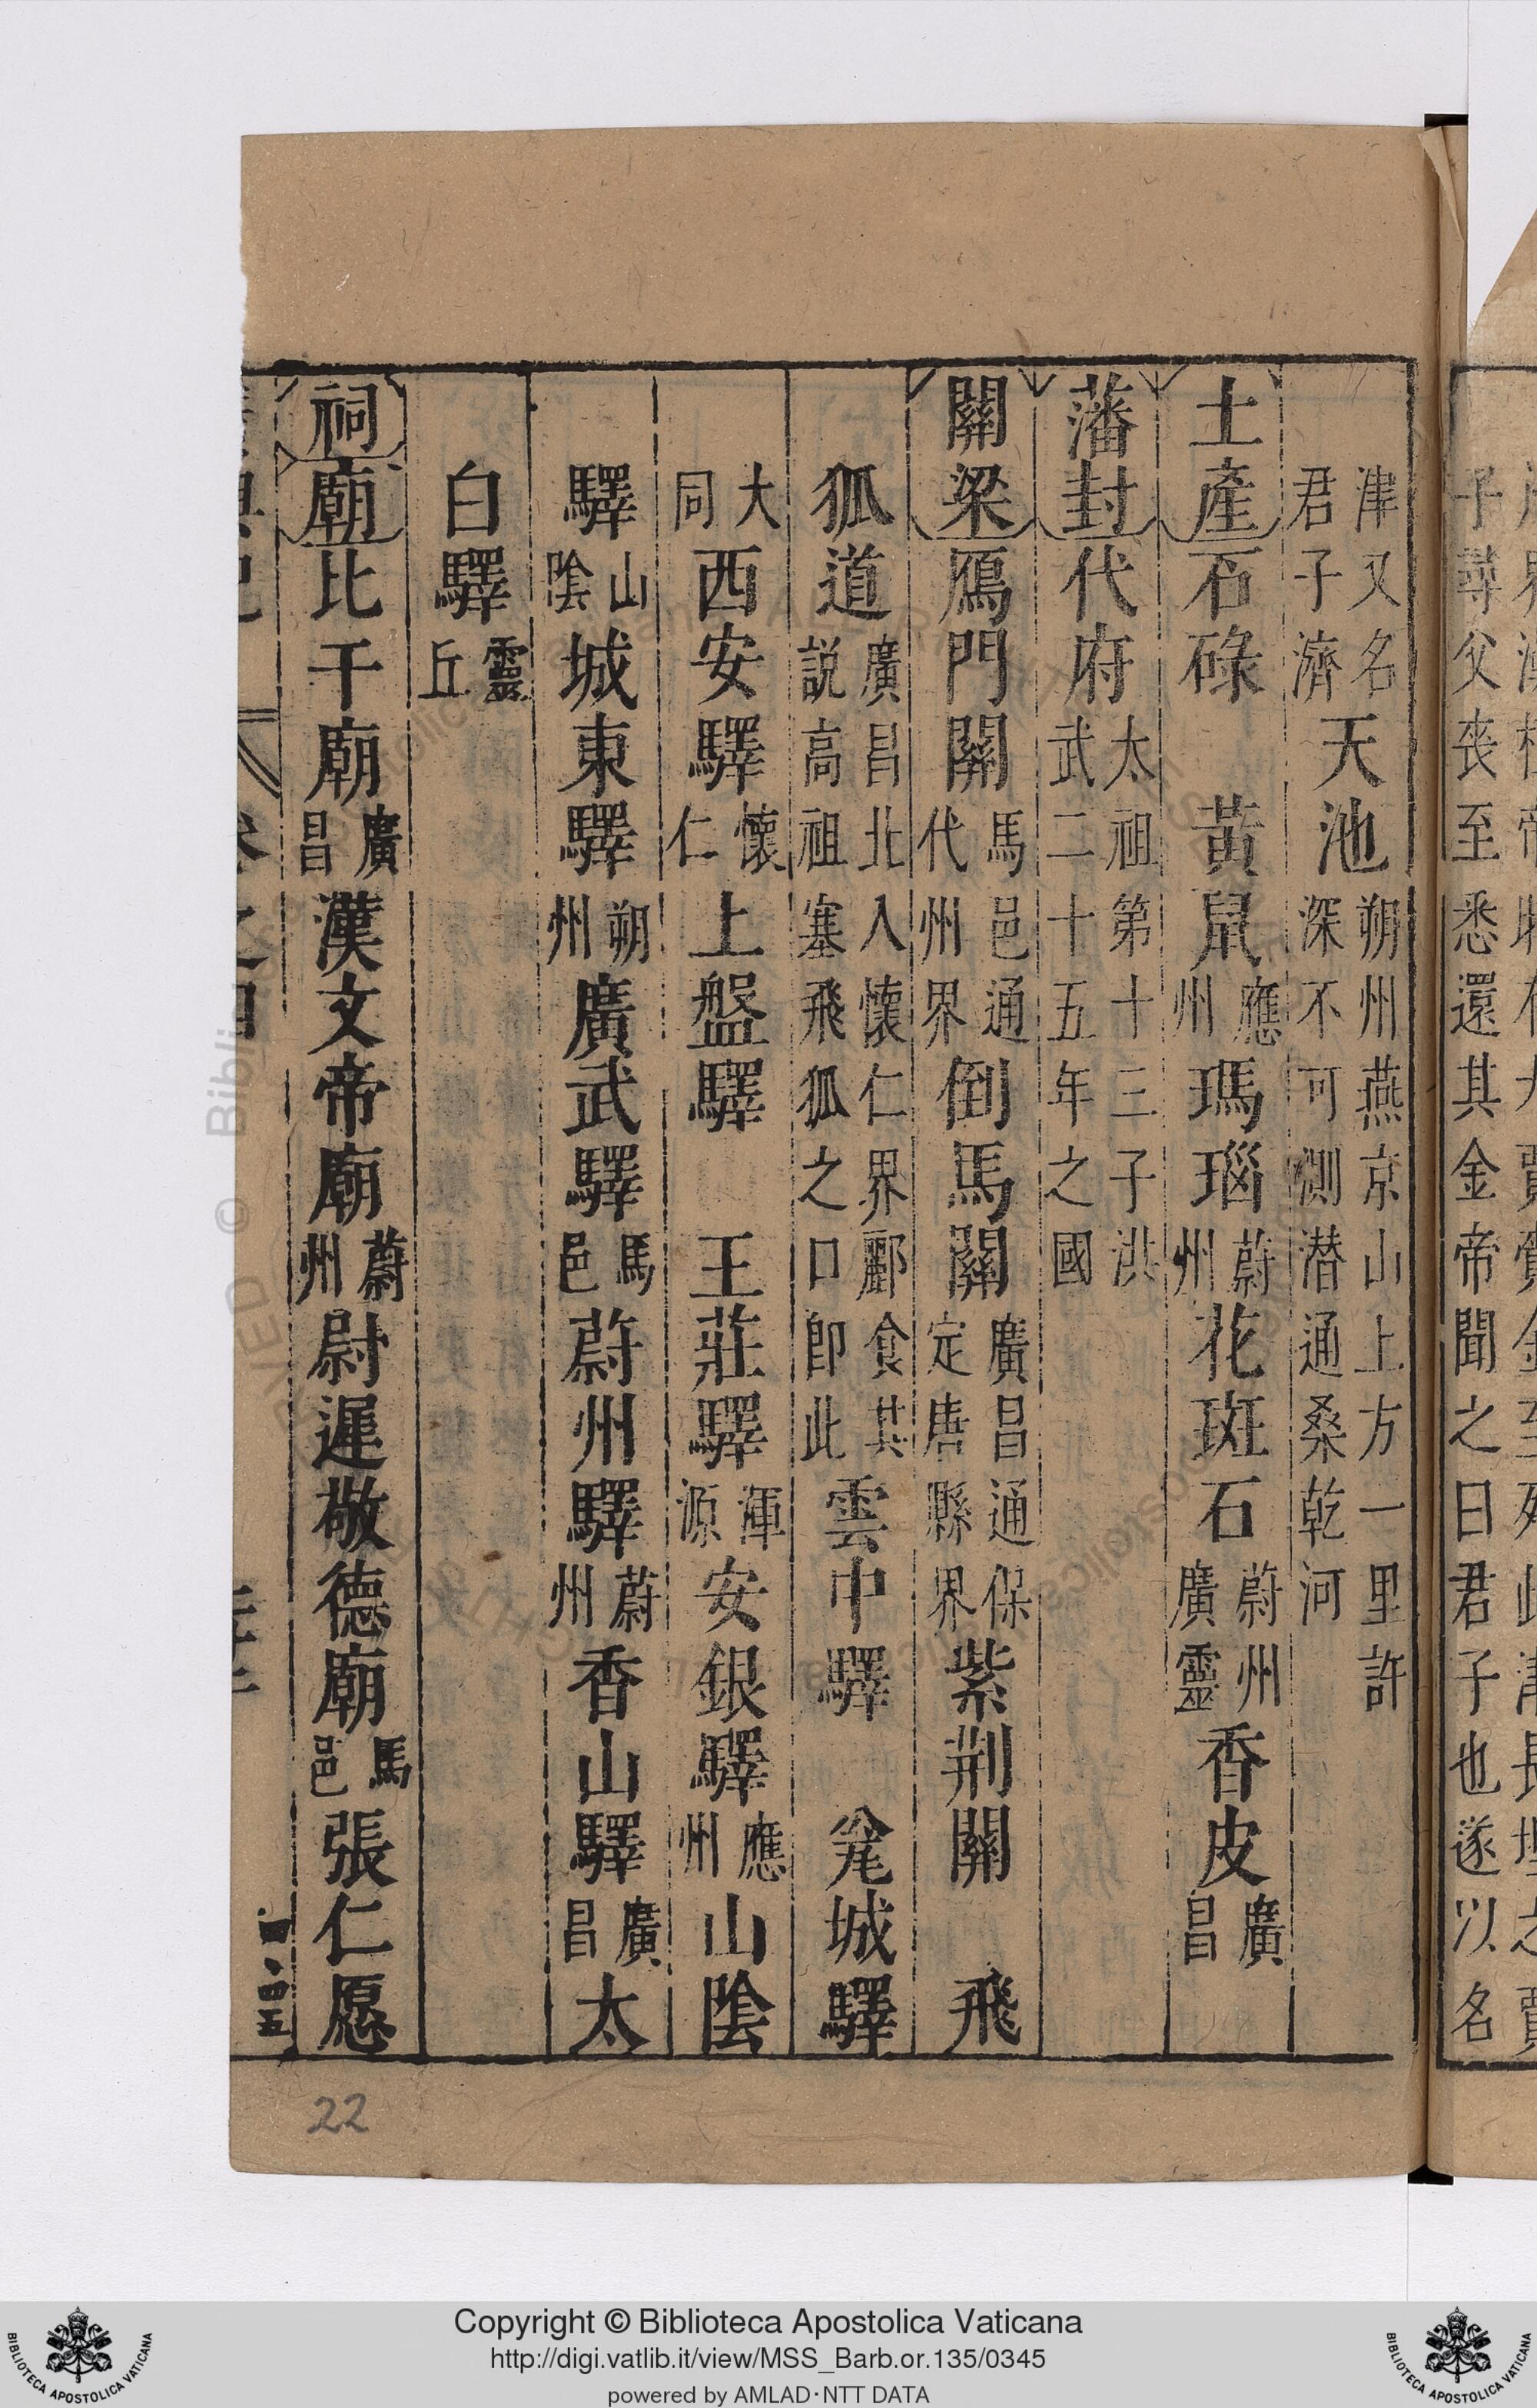 津又名
君子濟
天池
朔州燕京山上方一里許
深不可測潛通桑乾河
土產石碌 黃鼠
應州
瑪瑙
蔚州
花斑石
蔚州
廣靈
香皮
廣昌
藩封代府
太祖第十三子洪
武二十五年之國
關梁鴈門關
馬邑通
代州界
倒馬關
廣昌通保
定唐縣界
紫荆關 飛
狐道
廣昌北入懷仁界酈食其
説高祖塞飛狐之口即此
雲中驛 瓮城驛
大同
西安驛
懷仁
上盤驛 王莊驛
渾源
安銀驛
應州
山陰
驛
山陰
城東驛
朔州
廣武驛
馬邑
蔚州驛
蔚州
香山驛
廣昌
太
白驛
靈丘
祠廟比干廟
廣昌
漢文帝廟
蔚州
尉遲敬德廟
馬邑
張仁愿
子尋父丧至悉還其金帝聞之曰君子也遂以名
22
Copyright © Biblioteca Apostolica Vaticana
http://digi.vatlib.it/view/MSS_Barb.or.135/0345
powered by AMLAD·NTT DATA
BIBLIOTECA APOSTOLICA VATICANA
BIBLIOTECA APOSTOLICA VATICANA